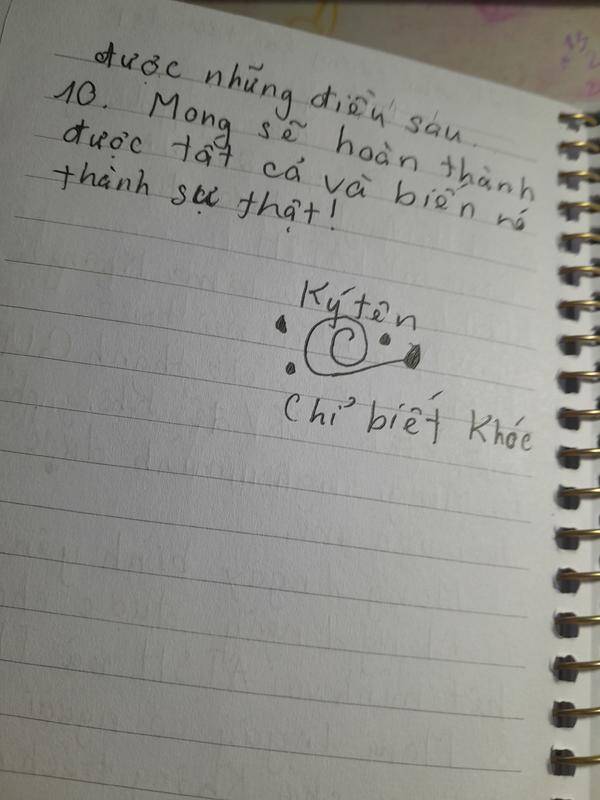 được những điều sau.
10. Mong sẽ hoàn thành
được tất cả và biến nó
thành sự thật!
Ký tên
C
Chỉ biết Khóc